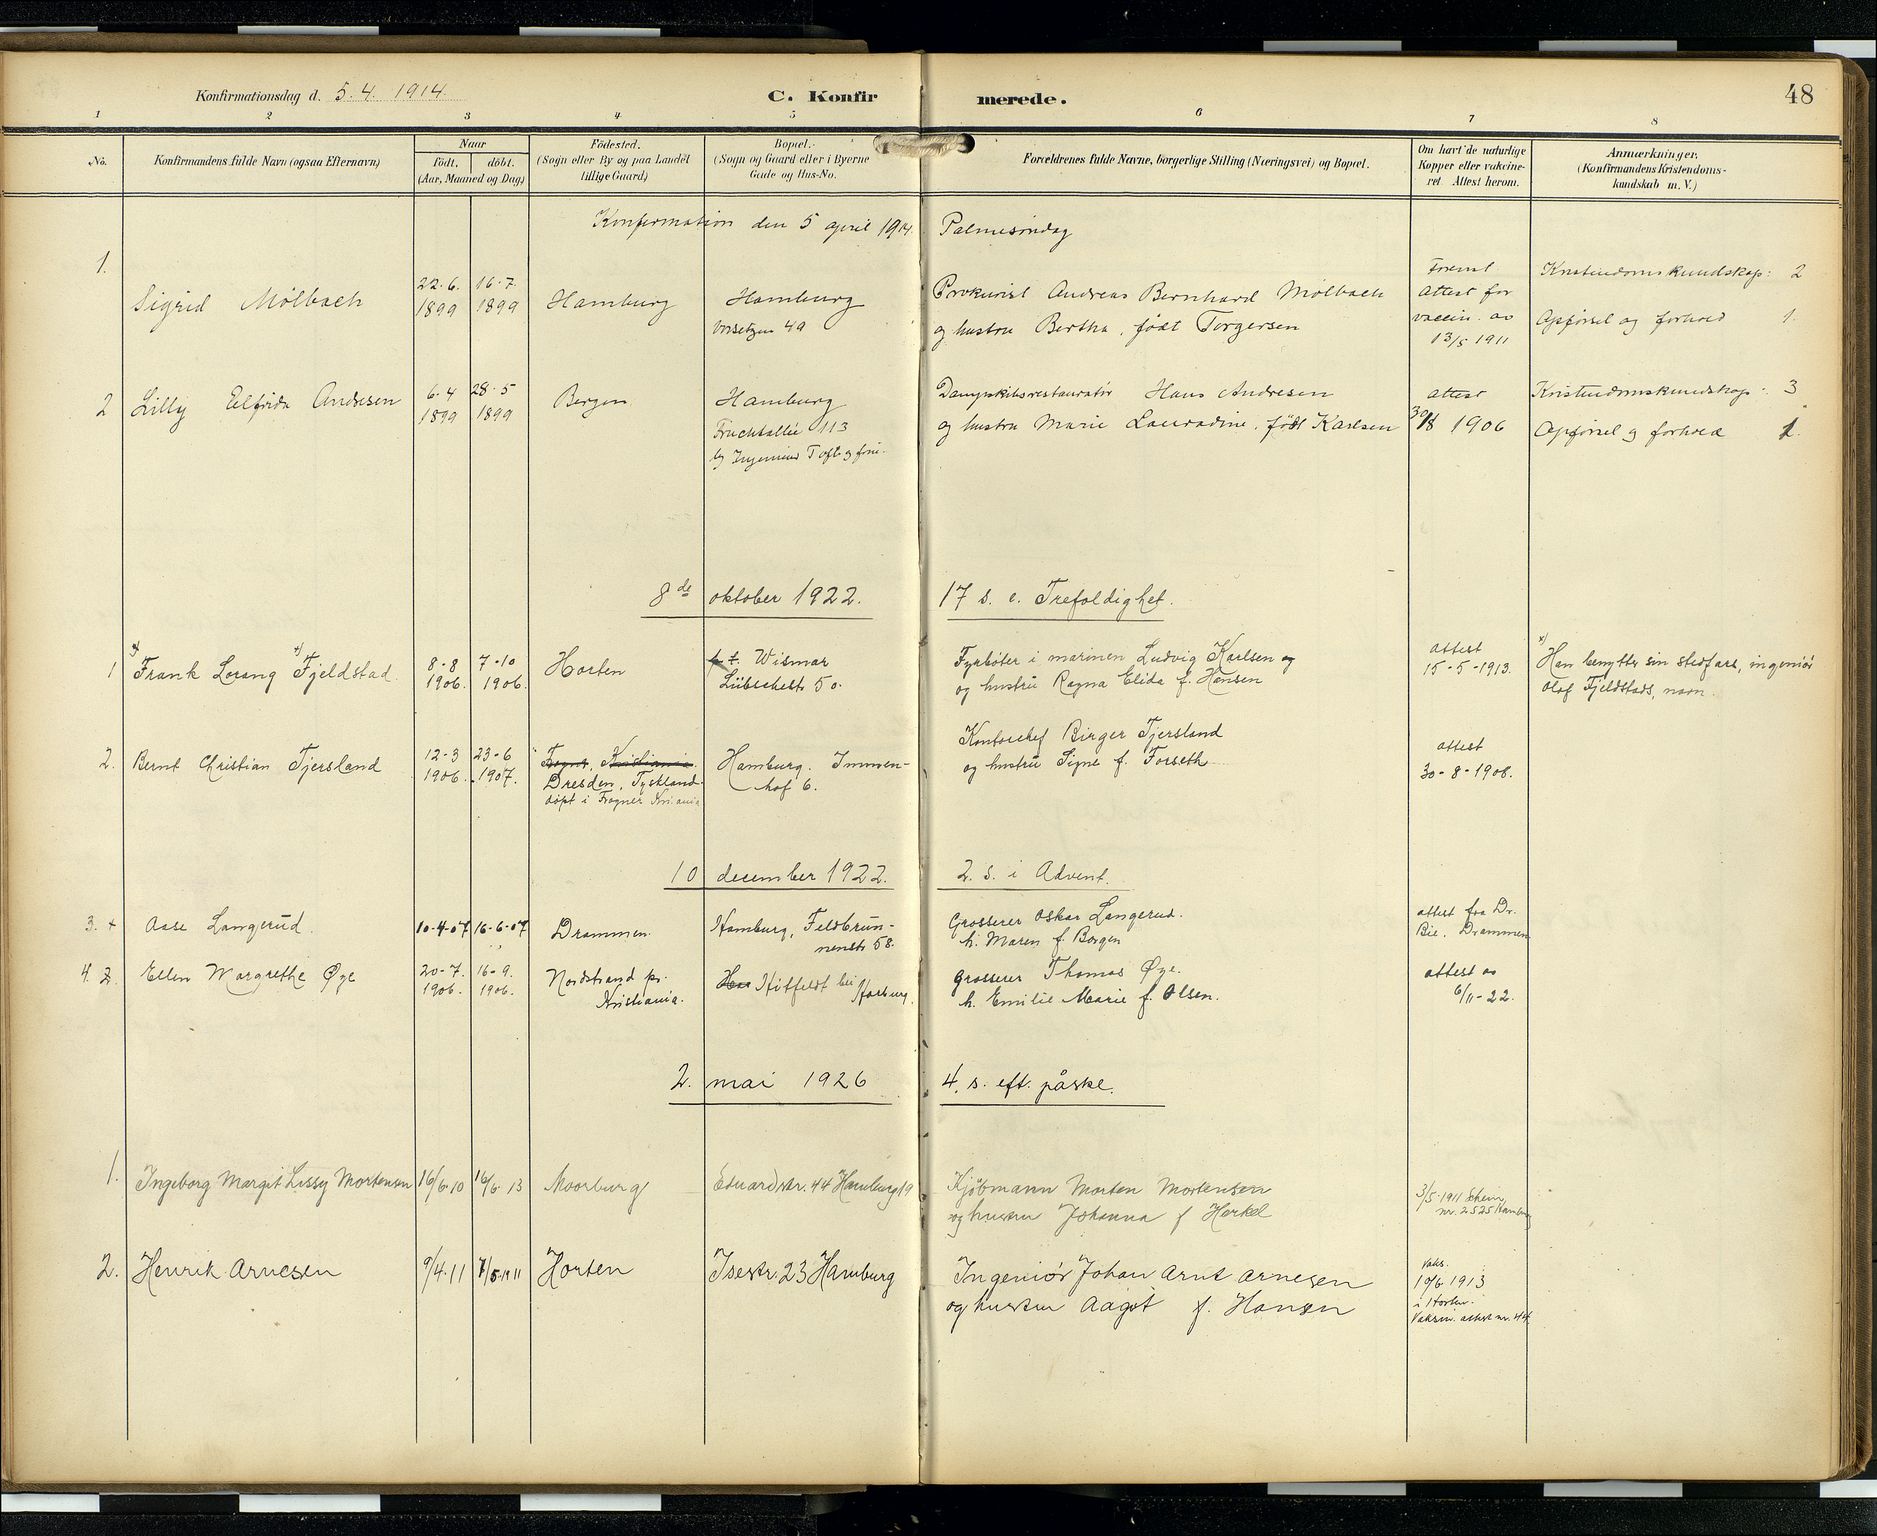 Konfirmationsdag d. 5.4.1914.
C. Konfirmerede.
48
1 2 3 4 5 6 7 8
No.
Konfirmandens fulde Navn (ogsaa Efternavn)
Naar
födt. döbt.
(Aar, Maaned og Dag)
Födested.
(Sogn eller By og paa Landet
tillige Gaard)
Bopæl.
(Sogn og Gaard eller i Byerne
Gade og Hus-No.
Forældrenes fulde Navne, borgerlige Stilling (Næringsvei) og Bopæl.
Om havt de naturlige
Kopper eller vakcine-
ret. Attest herom.
Anmærkninger.
(Konfirmandens Kristendoms-
kundskab m. V.)
Konfirmation den 5 april 1914. Palmesöndag
1.
Sigrid Mölbach
22.6. 1899
16.7. 1899
Hamburg
Hamburg
Vorsetzen 49
Prokurist Andreas Bernhard Mölbach
og hustru Bertha, födt Torgersen
Forevist
attest for
vaccin. av
13/5 1911
Kristendomskundskap: 2
Opförsel og forhold 1.
2
Lilly Elfrida Andresen
6.4 1899
28.5 1899
Bergen
Hamburg
Fruchtallée 113
Dampskibsrestauratör Hans Andresen
og hustru Marie Lauradine, födt Karlsen
attest
1906
Kristendomskundskap: 3
Opförsel og forhold 1.
8de oktober 1922. 17 s. e. Trefoldighet.
1
x) Frank Lorang x) Fjeldstad.
8-8 1906.
7-10 1906.
Horten
p.t. Wismar
Lübschestr. 50.
Fyrböter i marinen Ludvig Karlsen og
og hustru Ragna Elida f. Hansen
attest
15-5-1913.
x) Han benytter sin stedfars, ingeniör
Olaf Fjeldstads, navn.
2.
Bernt Christian Tjersland
12-3 1906.
23-6 1907.
Frogner, Kristiania.
Dresden, Tyskland.
döpt i Frogner Kr.ania
Hamburg. Immen-
hof 6.
Kontorchef Birger Tjersland
og hustru Signe f. Forseth
attest
30-8-1908.
10 december 1922. 2. s. i Advent.
3. +
Aase Langerud.
10-4-07
16-6-07
Drammen.
Hamburg, Feldbrun-
nenstr. 58.
Grosserer Oskar Langerud.
h. Maren f. Borgen
attest fra Dr.
Bie. Drammen
4. 2.
Ellen Margrethe Øye
20-7. 1906.
16-9. 1906.
Nordstrand pr.
Kristiania.
Har Hitfeldt bei
Harburg.
Grosserer Thomas Øye.
h. Emilie Marie f. Olsen.
attest av
6/11-22.
2. mai 1926 4. s. eft. påske.
1.
Ingeborg Margit Lissy Mortensen
16/6 10
16/6 13
Moorburg
Eduardstr. 44 Hamburg 19
Kjöbmann Morten Mortensen
og hustru Johanna f Herkel
3/5.1911 Schein
nr. 2525 Hamburg
2.
Henrik Arnesen
9/4.11
7/5.1911
Horten
Isestr. 23 Hamburg
Ingeniör Johan Arnt Arnesen
og hustru Aagot f. Hansen
Vaks.
10/6 1913
i Horten.
Vaksin. attest nr. 44